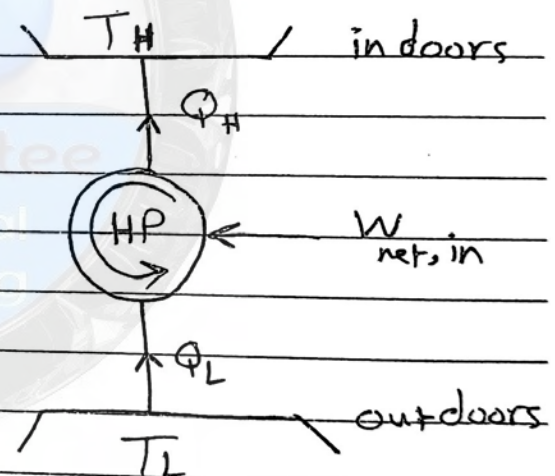 T_H indoors
Q_H
tee
al
HP W_net, in
g
Q_L
outdoors
T_L